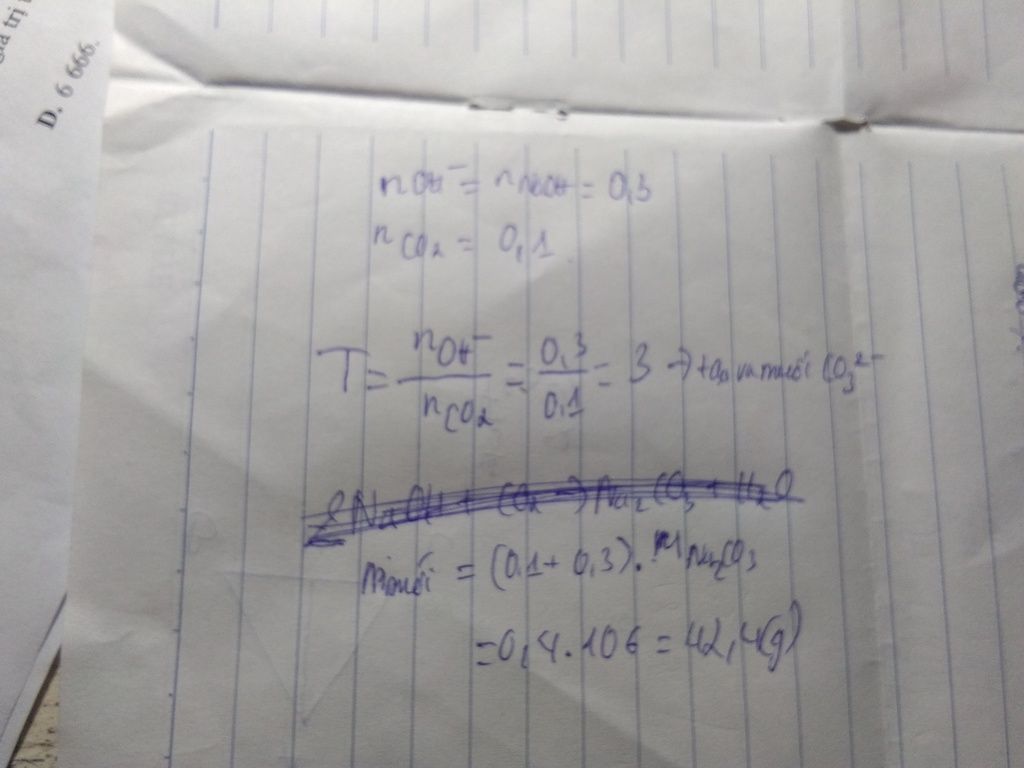 giá trị
D. 6 666.
nOH⁻ = nNaOH = 0,3
nCO2 = 0,1
T = nOH⁻/nCO2 = 0,3/0,1 = 3 → tạo ra muối CO3²⁻
2NaOH + CO2 → Na2CO3 + H2O
mmuối = (0,1 + 0,3). MNa2CO3
= 0,4.106 = 42,4(g)